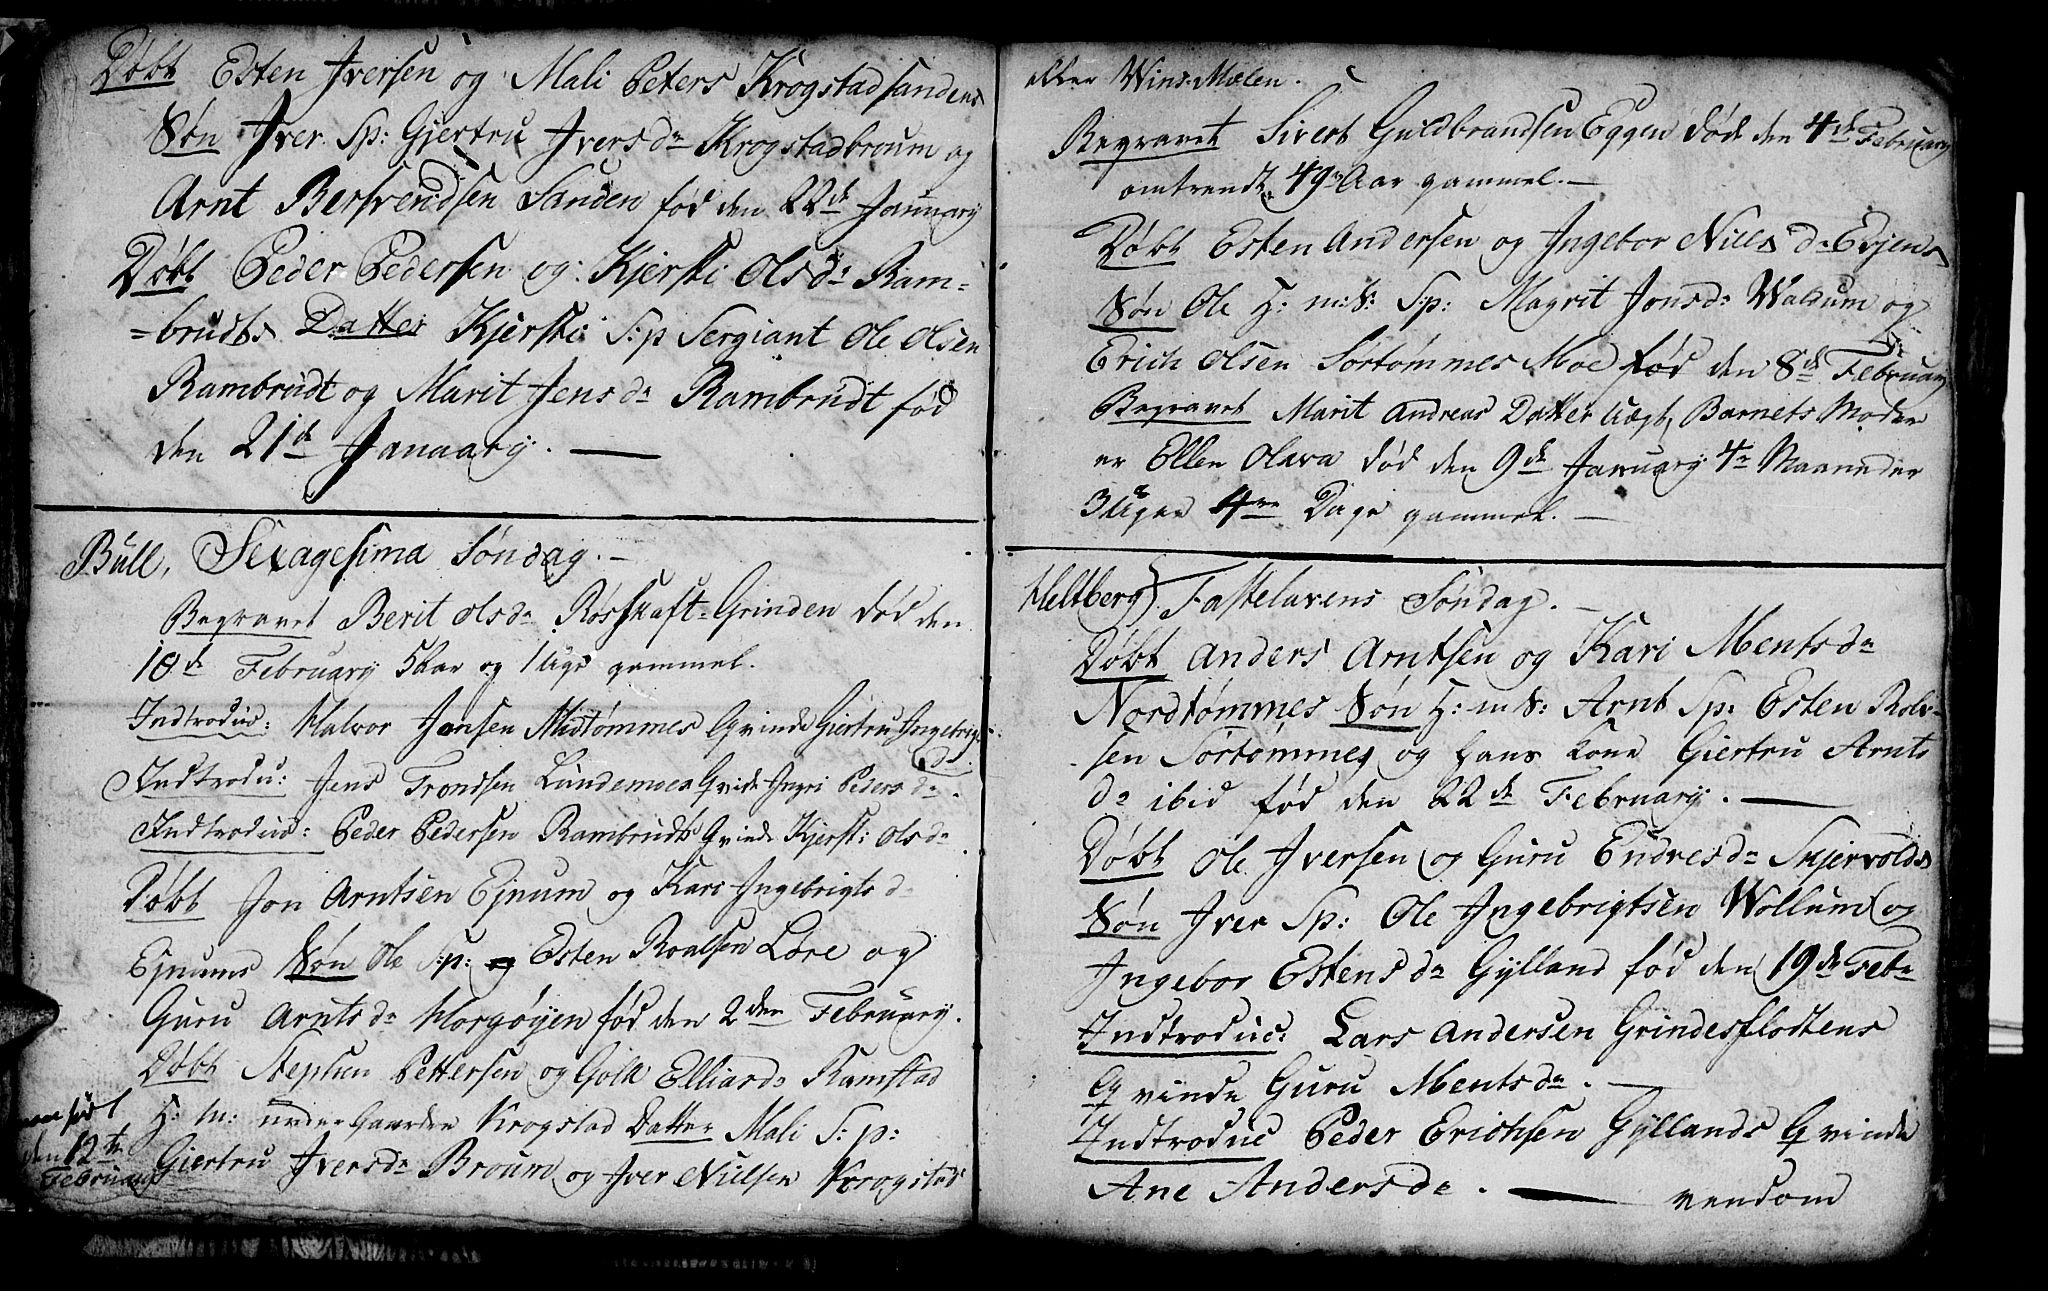 Døbt Esten Iversen og Mali Peters Krogstadsandens
Søn Iver Sp: Gjertru Iversdr Krogstadbroum og
Arnt Bersvendsen Sanden fød den 22de January
Døbt Peder Pedersen og Kjersti Olsdr Ram-
-brudts Datter Kjersti S:p Sergiant Ole Olsen
Rambrudt og Marit Jensdr Rambrudt fød
den 21de January. —
Bull, Sexagesima Søndag. —
Begravet Berit Olsdr Rosskaft-Grinden død den
10de February 5 Aar og 1 Uge gammel.
Indtroduc: Halvor Jensen Midtømmes Qvinde Giertru Ingebrigts
dr.
Indtrodu: Jens Trondsen Lundemoes Qvinde Ingri Pedersdr.
Indtroduc: Peder Pedersen Rambrudts Qvinde Kjerst: Olsdr
Døbt Jon Arntsen Ejnum og Kari Ingebrigtsd
Ejnums Søn Ole S:p: Esten Roalsen Lore og
Guru Arntsdr Horgøyen fød den 2den February.
Døbt Stephen Pettersen og Golla Elliardr Ramstad
H: m: under Gaarden Krogstad Datter Mali S:p:
Giertru Iversdr Broum og Iver Nillsen Krogstad
fød
den 12te
February
eller Wins-Mælen.
Begravet Sivert Guldbrandsen Eggen død den 4de February
omtrendt 49 Aar gammel. —
Døbt Esten Andersen og Ingebor Nillsdr Evjens
Søn Ole H: m:S: S:p: Magrit Jonsdr Waldum og
Erich Olsen Sørtømmes Moe fød den 8de February
Begravet Marit Andreas Datter Uægt, Barnets Moder
er Ellen Olava død den 9de January 4re Maaneder
3 Uger 4re Dage gammel. —
Heltberg) Fastelavens Søndag. —
Døbt Anders Arntsen og Kari Mentsdr
Nordtømmes Søn H: m S: Arnt Sp: Esten Rolv-
sen Sørtømmes og Hans Kone Giertru Arnts
dr ibid fød den 22de February. —
Døbt Ole Iversen og Guru Endresdr Skjervolds
Søn Iver Sp: Ole Ingebrigtsen Wollum og
Ingebor Estensdr Gylland fød den 19de Febr
Indtroduc: Lars Andersen Grindesflodtens
Qvinde Guru Mentsdr. —
Indtroduc Peder Erichsen Gyllands Qvinde
Ane Andersdr. — vendom